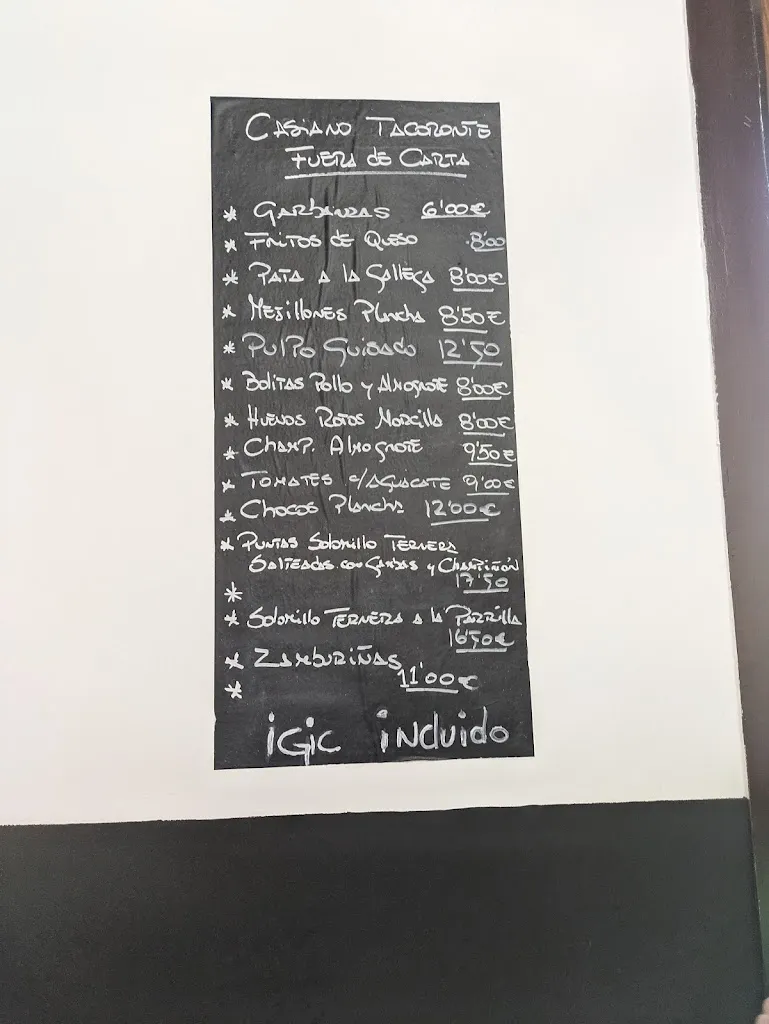 CASIANO TACORONTE
FUERA DE CARTA
* GARBANZAS 6'00€
* FRITOS DE QUESO 8'00
* PATA A LA GALLEGA 8'00€
* MEJILLONES PLANCHA 8'50€
* PULPO GUISADO 12'50
* BOLITAS POLLO Y ALMOGROTE 8'00€
* HUEVOS ROTOS MORCILLA 8'00€
* CHAMP. ALMOGROTE 9'50€
* TOMATES C/AGUACATE 9'00€
* CHOCOS PLANCHA 12'00€
* PUNTAS SOLOMILLO TERNERA
SALTEADAS CON GAMBAS Y CHAMPIÑÓN
17'50
*
* SOLOMILLO TERNERA A LA PARRILLA
16'50€
* ZAMBURIÑAS
11'00€
*
iGiC iNCLUiDO